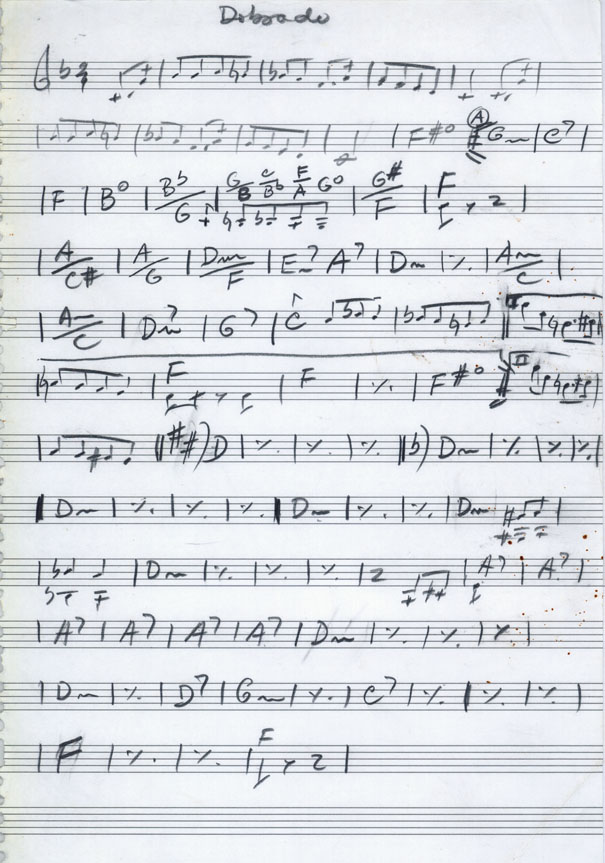 Dobrado
F#° A Gm C7
F B° Bb/G G/B C/Bb F/A G° G#/F F 2
A/C# A/G Dm/F Em7 A7 Dm ٪ Am/C
Am/C Dm7 G7 C I
F F ٪ F#° II
##) D ٪ ٪ ٪ b) Dm ٪ ٪ ٪
Dm ٪ ٪ ٪ Dm ٪ ٪ Dm
Dm ٪ ٪ ٪ 2 A7 A7
A7 A7 A7 A7 Dm ٪ ٪ ٪
Dm ٪ D7 Gm ٪ C7 ٪ ٪ ٪
F ٪ ٪ F 2